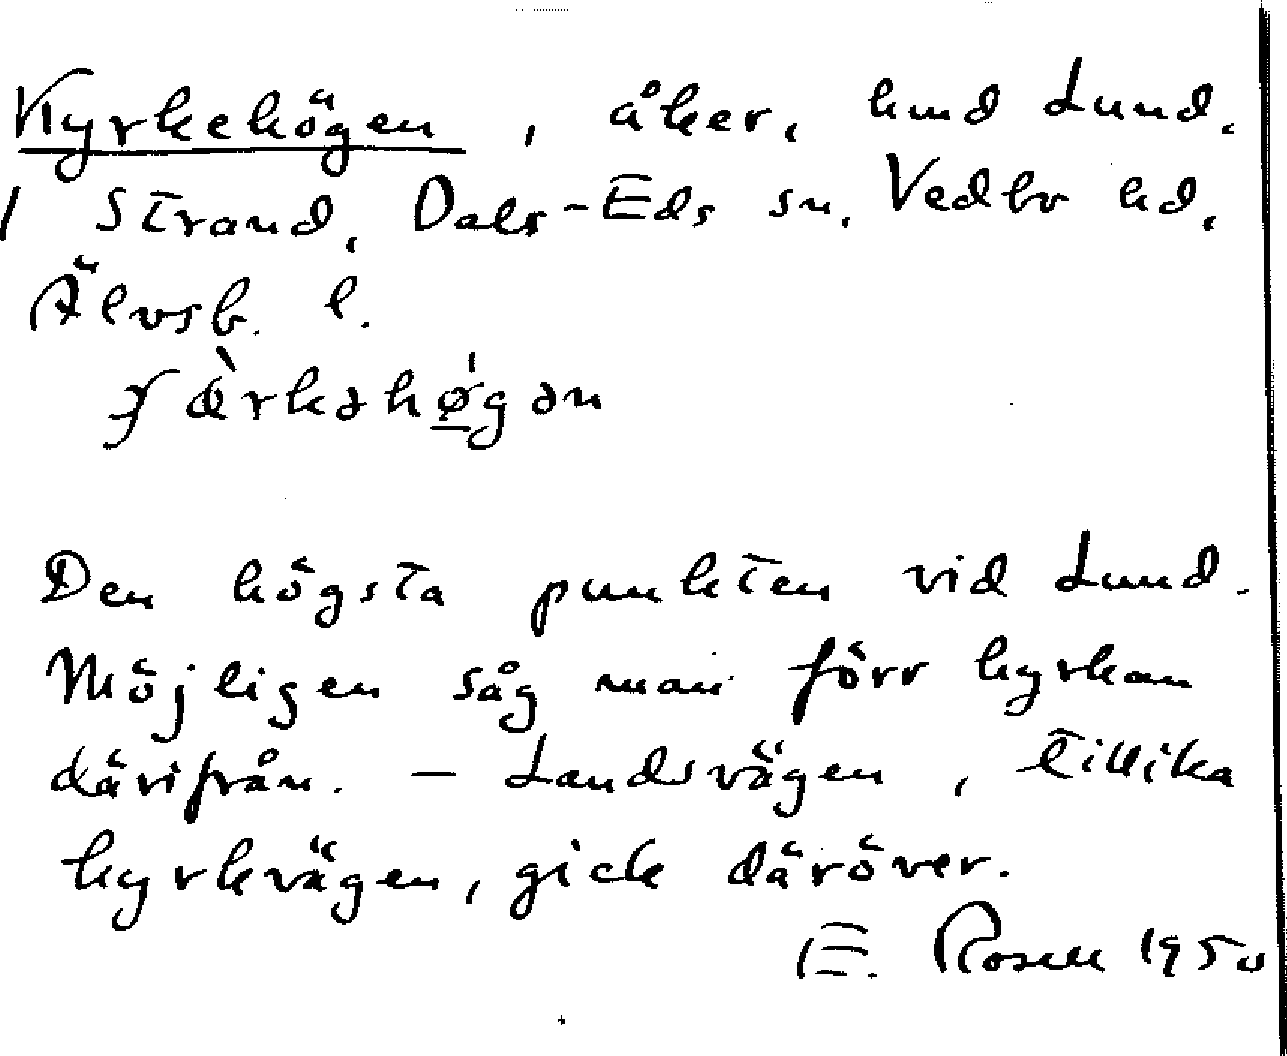 Kyrkehögen, åker, hmd Lund.
/ Strand, Dals-Eds sn. Vedbo hd.
Älvsb. l.
ʄæ̀rkəhǿ̱gən
Den högsta punkten vid Lund.
Möjligen såg man förr kyrkan
därifrån. – Landsvägen, tillika
kyrkvägen, gick däröver.
E. Rosell 1950